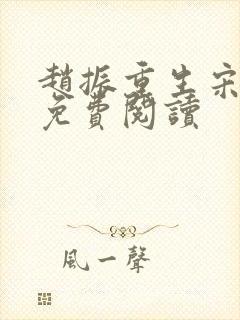 趙振重生宋
免費閱讀
風一聲